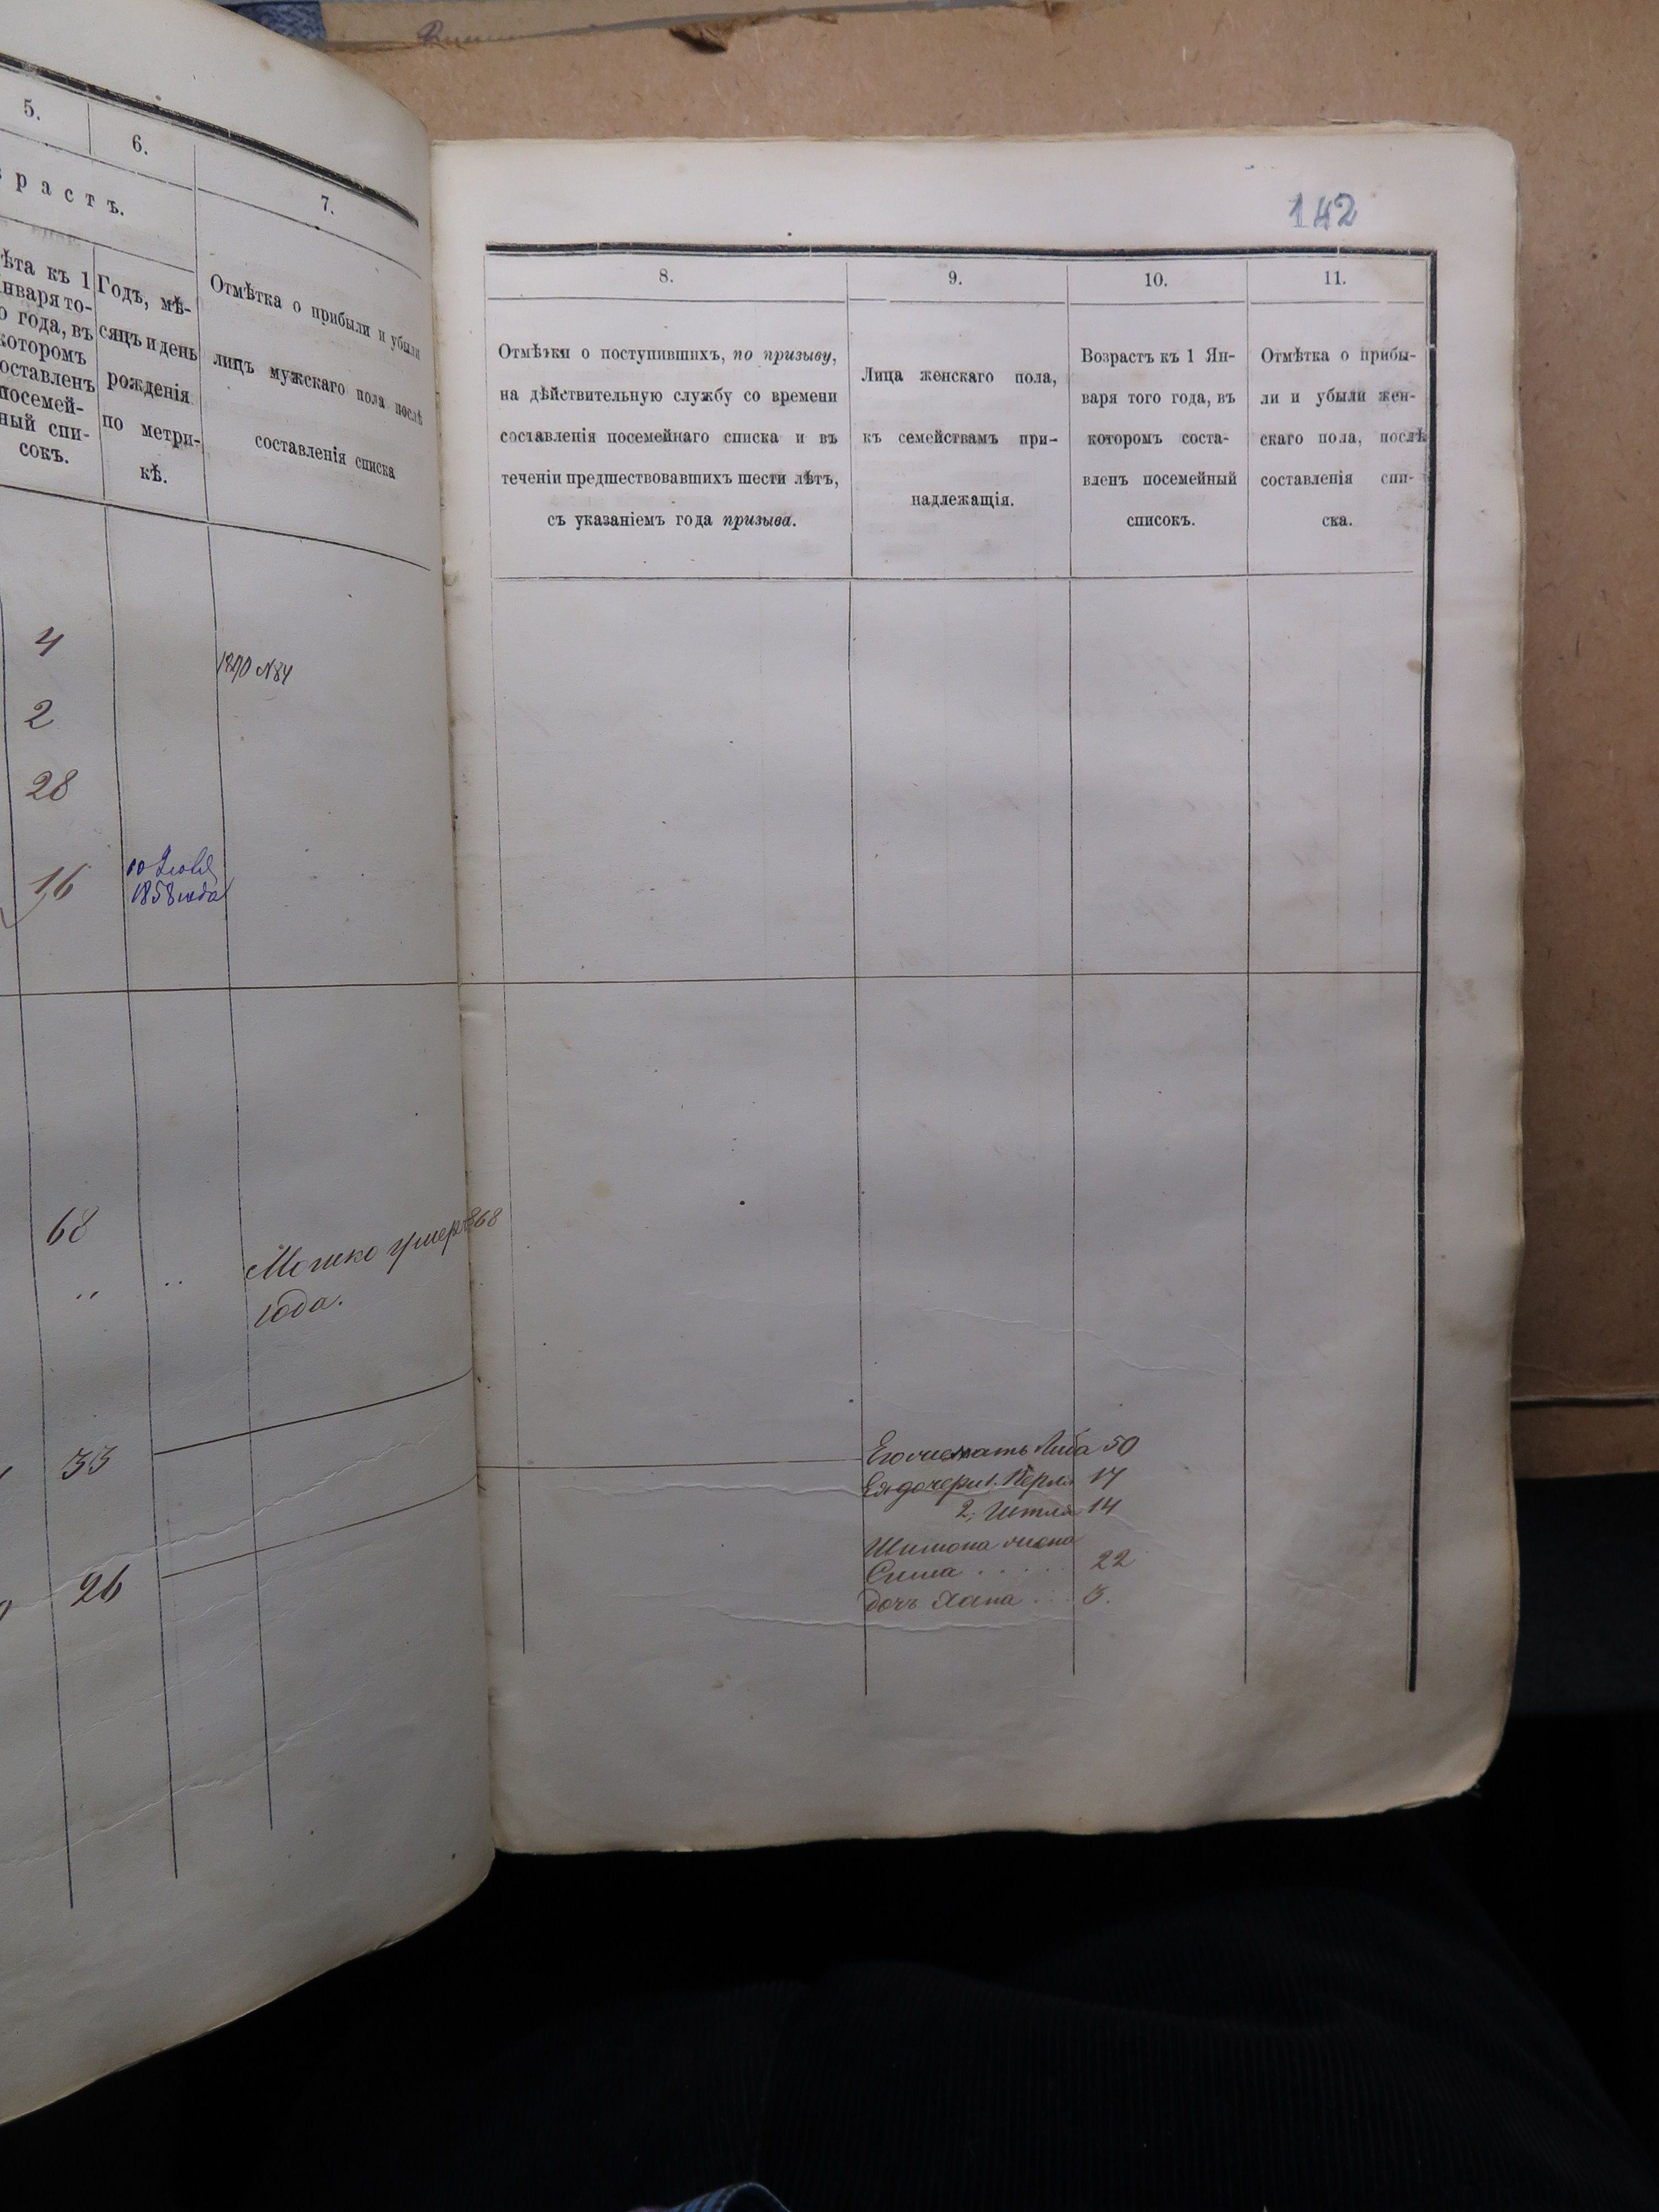 5.
6.
7.
растъ.
ѣта къ 1
нваря то-
о года, въ
которомъ
оставленъ
посемей-
ный спи-
сокъ.
Годъ, мѣ-
сяцъ и день
рожденія
по метри-
кѣ.
Отмѣтка о прибыли и убыли
лицъ мужскаго пола послѣ
составленія списка
4
1870 №84
2
28
16
1858 года
68
Мошко умеръ 1868
года.
33
26
142
8.
9.
10.
11.
Отмѣтки о поступившихъ, по призыву,
на дѣйствительную службу со времени
составленія посемейнаго списка и въ
теченіи предшествовавшихъ шести лѣтъ,
съ указаніемъ года призыва.
Лица женскаго пола,
къ семействамъ при-
надлежащія.
Возрастъ къ 1 Ян-
варя того года, въ
которомъ соста-
вленъ посемейный
списокъ.
Отмѣтка о прибы-
ли и убыли жен-
скаго пола, послѣ
составленія спи-
ска.
Его мать Либа 50
Ея дочери 1. Перля 17
2, Итля 14
Шимона жена
Сима 22
дочь Хана 3.